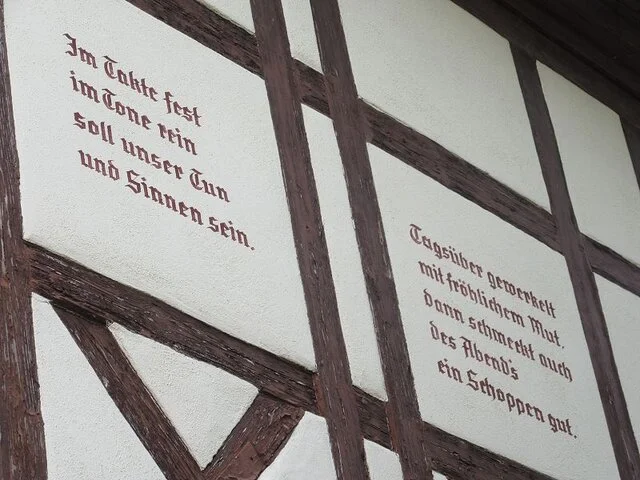 Im Takte fest
im Tone rein
soll unser Tun
und Sinnen sein.
Tagsüber gewerkelt
mit fröhlichem Mut,
dann schmeckt auch
des Abend's
ein Schoppen gut.